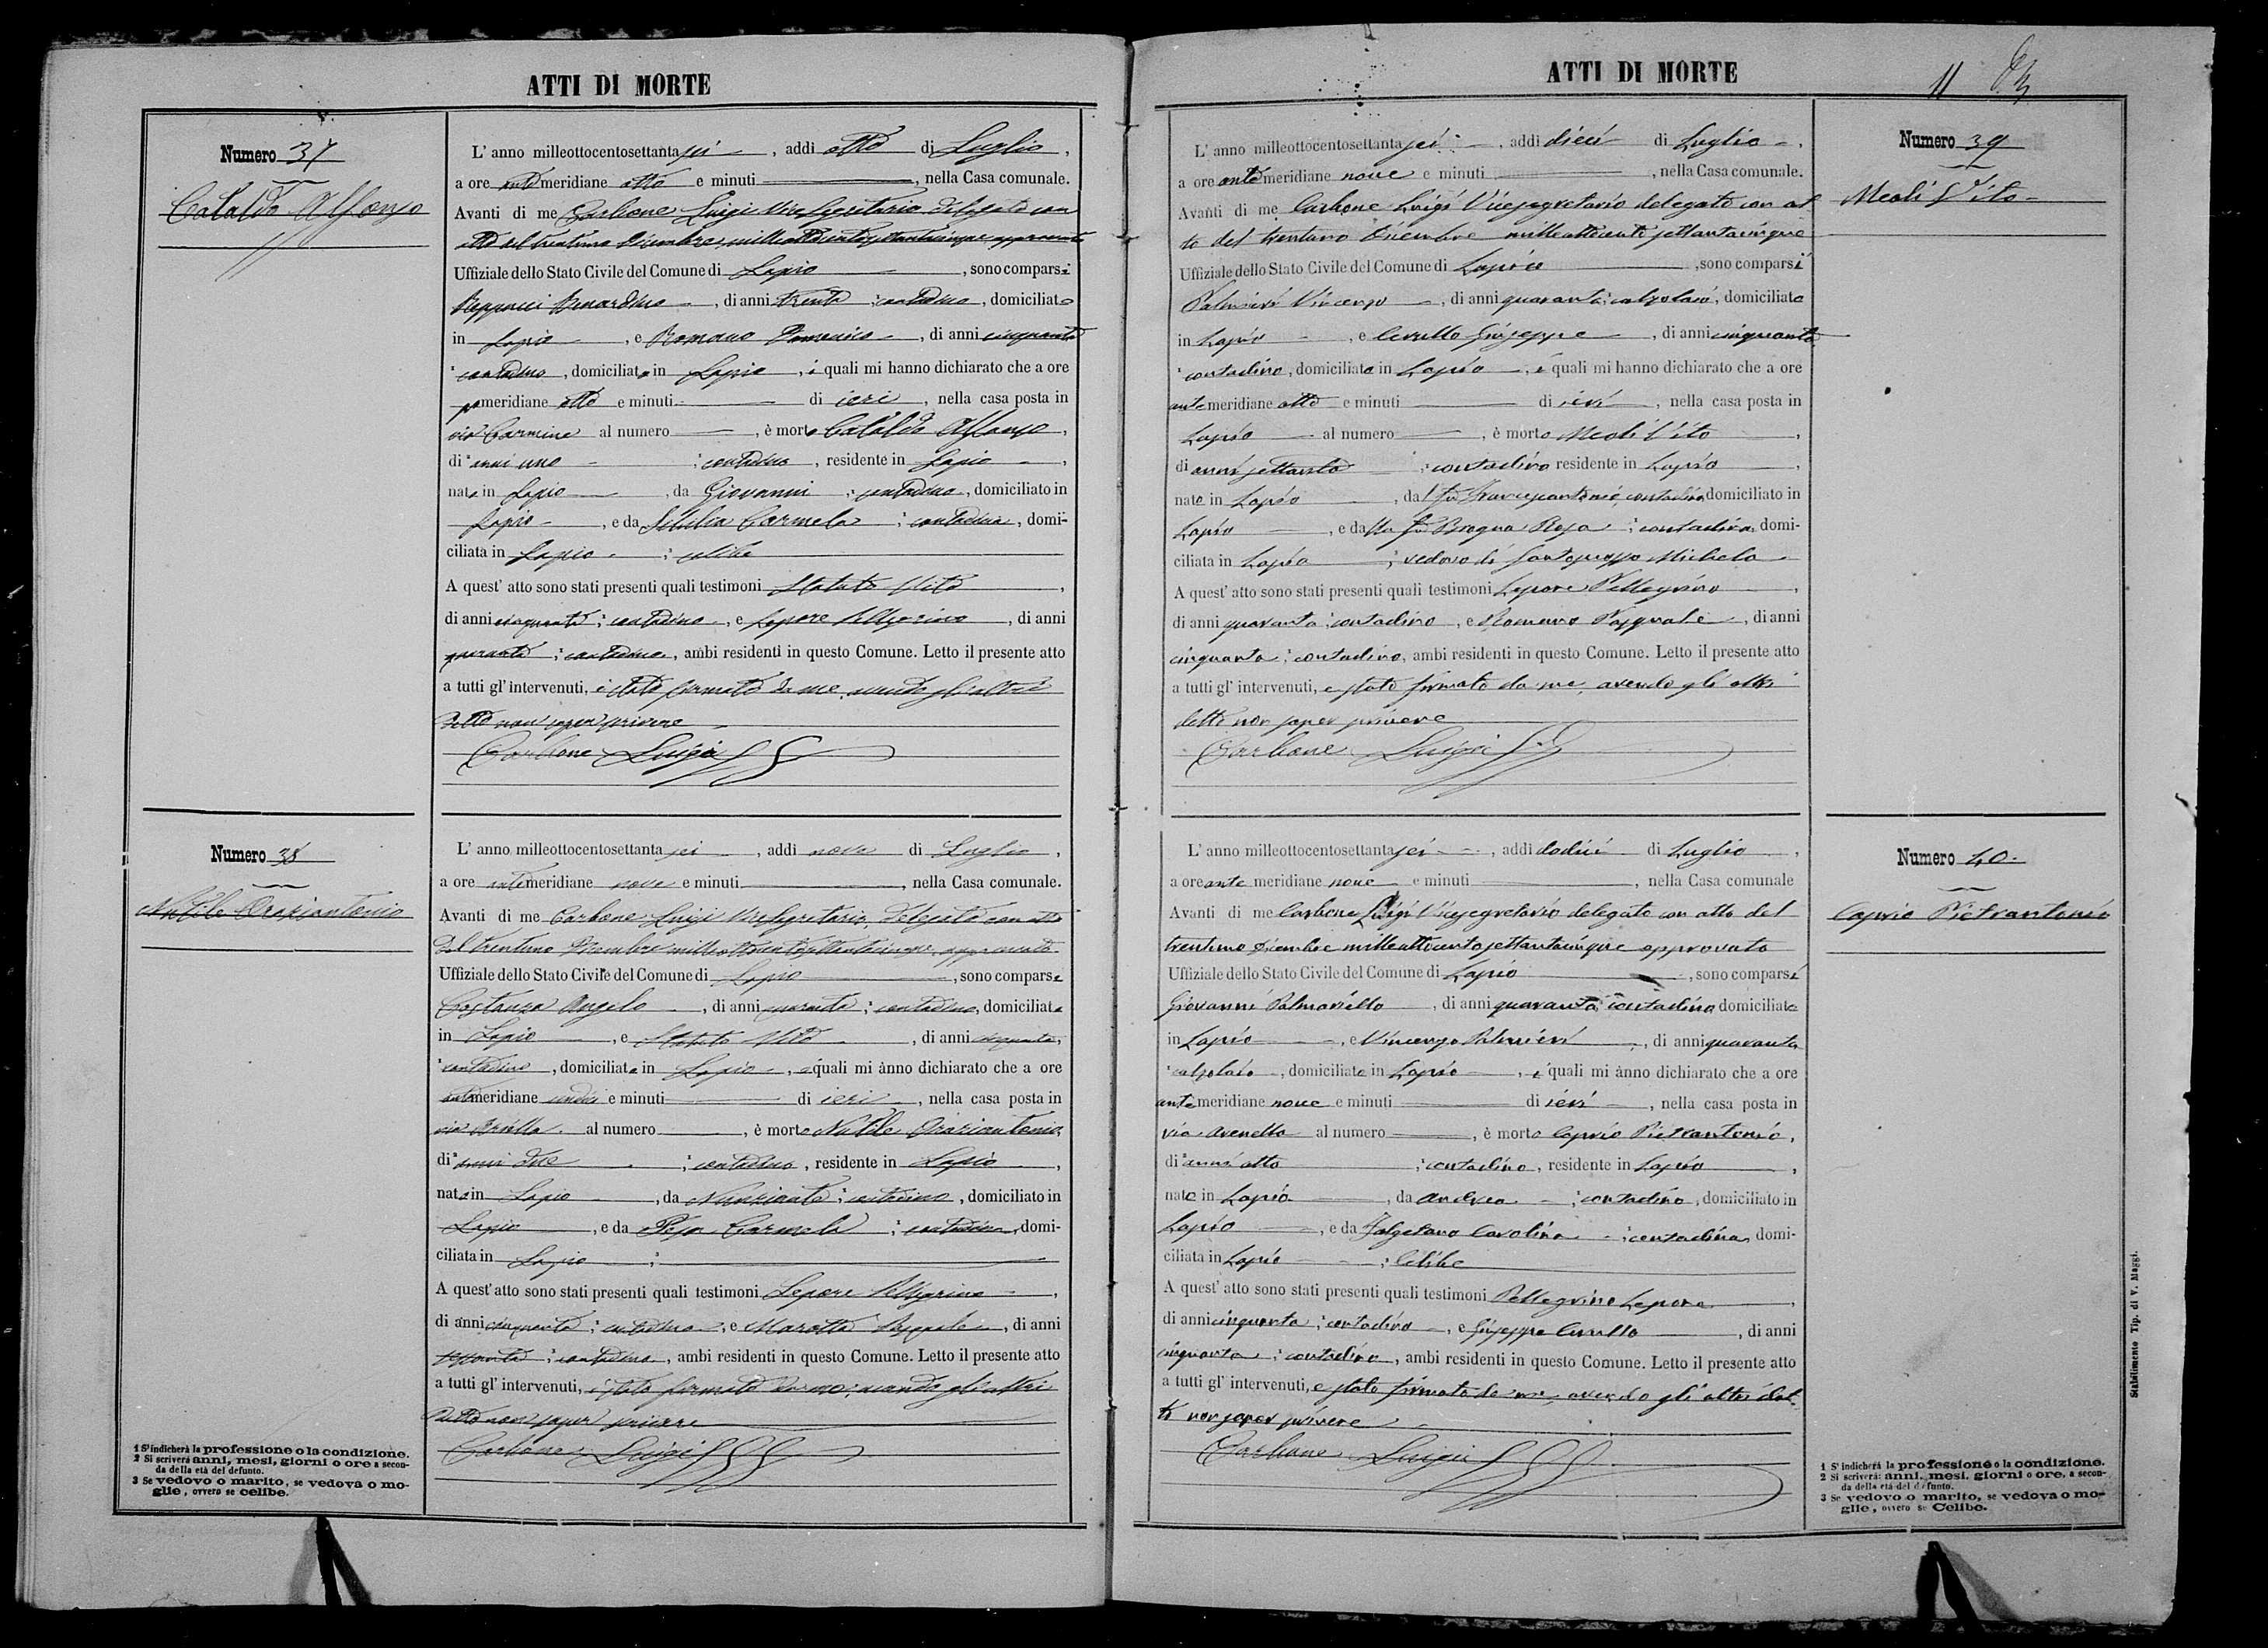 ATTI DI MORTE
Numero 37
Cataldo Alfonso
L' anno milleottocentosettanta sei, addì otto di Luglio,
a ore antimeridiane otto e minuti, nella Casa comunale.
Avanti di me Carbone Luigi Vicesegretario delegato con
atto del trentuno Dicembre milleottocentosettantacinque approvato
Uffiziale dello Stato Civile del Comune di Lapio, sono comparsi
Bernardino, di anni trenta; contadino, domiciliato
in Lapio, e Romano Domenico, di anni cinquanta
contadino, domiciliato in Lapio, i quali mi hanno dichiarato che a ore
pomeridiane otto e minuti di ieri, nella casa posta in
via Carmine al numero, è morto Cataldo Alfonso,
di anni uno; contadino, residente in Lapio,
nato in Lapio, da Giovanni; contadino, domiciliato in
Lapio, e da Carmela; contadina, domi-
ciliata in Lapio; celibe
A quest' atto sono stati presenti quali testimoni Statuto Vito,
di anni cinquanta; contadino, e Lepore Pellegrino, di anni
quaranta; contadino, ambi residenti in questo Comune. Letto il presente atto
a tutti gl' intervenuti, è stato firmato da me, avendo gli altri
detto non saper scrivere
Carbone Luigi
Numero 38
Nutile Oraziantonio
L' anno milleottocentosettanta sei, addì nove di Luglio,
a ore antimeridiane nove e minuti, nella Casa comunale.
Avanti di me Carbone Luigi Vicesegretario, delegato con atto
del trentuno Dicembre milleottocentosettantacinque approvato
Uffiziale dello Stato Civile del Comune di Lapio, sono comparsi
Costanza Angelo, di anni quaranta; contadino, domiciliato
in Lapio, e Statuto Vito, di anni cinquanta,
contadino, domiciliato in Lapio, i quali mi ànno dichiarato che a ore
antimeridiane undici e minuti di ieri, nella casa posta in
via al numero, è morto Nutile Oraziantonio,
di anni due; contadino, residente in Lapio,
nato in Lapio, da Nunziante; contadino, domiciliato in
Lapio, e da Carmela; contadina, domi-
ciliata in Lapio;
A quest' atto sono stati presenti quali testimoni Lepore Pellegrino,
di anni cinquanta; contadino, e Marotta Pasquale, di anni
sessanta; contadino, ambi residenti in questo Comune. Letto il presente atto
a tutti gl' intervenuti, è stato firmato da me, avendo gli altri
detto non saper scrivere
Carbone Luigi
1 S' indicherà la professione o la condizione.
2 Si scriverà anni, mesi, giorni o ore a secon-
da della età del defunto.
3 Se vedovo o marito, se vedova o mo-
glie, ovvero se celibe.
ATTI DI MORTE
11
L' anno milleottocentosettanta sei, addì dieci di Luglio,
a ore antimeridiane nove e minuti, nella Casa comunale.
Avanti di me Carbone Luigi Vicesegretario delegato con at
to del trentuno Dicembre milleottocento settantacinque
Uffiziale dello Stato Civile del Comune di Lapio, sono comparsi
Palmieri Vincenzo, di anni quaranta; calzolaio, domiciliato
in Lapio, e Cirullo Giuseppe, di anni cinquanta
contadino, domiciliato in Lapio, i quali mi hanno dichiarato che a ore
antimeridiane otto e minuti di ieri, nella casa posta in
Lapio al numero, è morto Meoli Vito,
di anni settanta; contadino residente in Lapio,
nato in Lapio, dal fu Francescantonio, contadino domiciliato in
Lapio, e dalla fu Brogna Rosa; contadina, domi-
ciliata in Lapio; vedovo di Santosuosso Michela
A quest' atto sono stati presenti quali testimoni Lepore Pellegrino,
di anni quaranta; contadino, e Romano Pasquale, di anni
cinquanta; contadino, ambi residenti in questo Comune. Letto il presente atto
a tutti gl' intervenuti, è stato firmato da me, avendo gli altri
detto non saper scrivere
Carbone Luigi
Numero 39
Meoli Vito
L' anno milleottocentosettanta sei, addì dodici di Luglio,
a ore antimeridiane nove e minuti, nella Casa comunale
Avanti di me Carbone Luigi Vicesegretario delegato con atto del
trentuno Dicembre milleottocentosettantacinque approvato
Uffiziale dello Stato Civile del Comune di Lapio, sono comparsi
Giovanni Palmariello, di anni quaranta; contadino domiciliato
in Lapio, e Vincenzo Palmieri, di anni quaranta
calzolaio, domiciliato in Lapio, i quali mi ànno dichiarato che a ore
antimeridiane nove e minuti di ieri, nella casa posta in
via Avenella al numero, è morto Caprio Pietrantonio,
di anni otto; contadino, residente in Lapio,
nato in Lapio, da Andrea; contadino, domiciliato in
Lapio, e da Carolina; contadina, domi-
ciliata in Lapio; Celibe
A quest' atto sono stati presenti quali testimoni Pellegrino Lepore,
di anni cinquanta; contadino, e Giuseppe Cirullo, di anni
cinquanta; contadino, ambi residenti in questo Comune. Letto il presente atto
a tutti gl' intervenuti, è stato firmato da me, avendo gli altri det
to non saper scrivere
Carbone Luigi
Numero 40.
Caprio Pietrantonio
1 S' indicherà la professione o la condizione.
2 Si scriverà: anni, mesi, giorni o ore, a secon-
da della età del defunto.
3 Se vedovo o marito, se vedova o mo-
glie, ovvero se Celibe.
Stabilimento Tip. di V. Maggi.